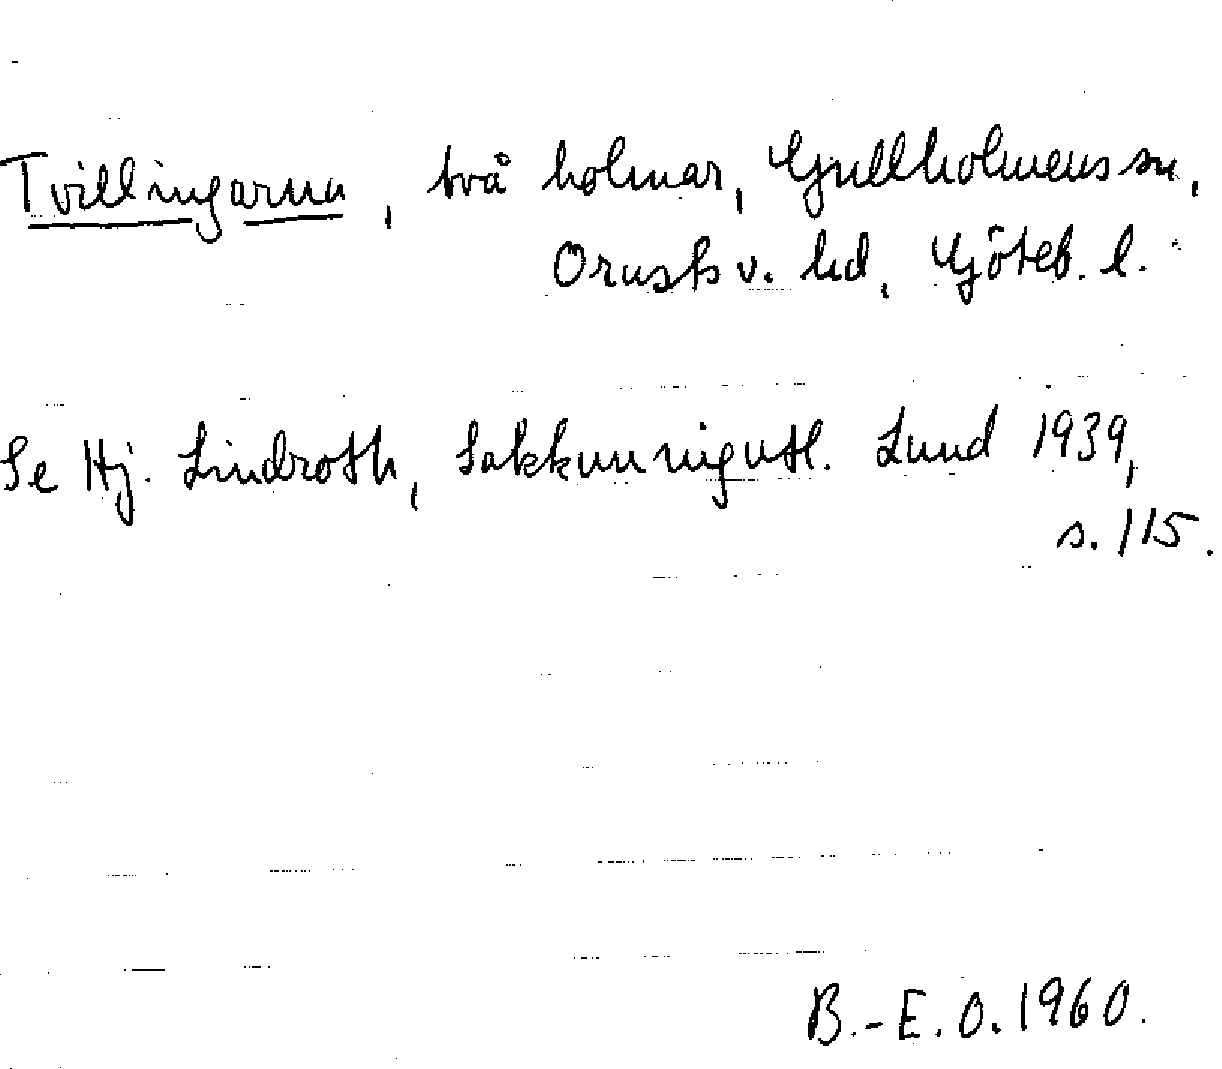 Tvillingarna, två holmar, Gullholmens sn,
Orusts v. hd, Göteb. l.
Se Hj. Lindroth, Sakkunnigutl. Lund 1939,
s. 115.
B.-E. O. 1960.